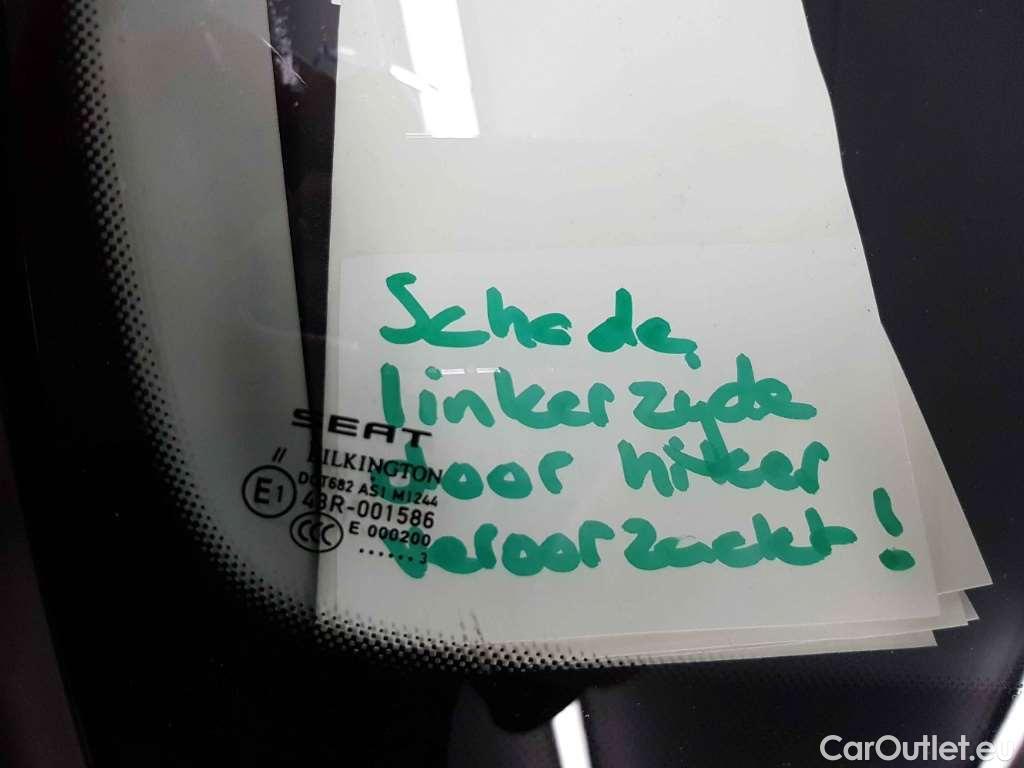 Schade,
linkerzyde
door hitker
veroorzackt!
SEAT
PILKINGTON
DOT682 AS1 M1244
E1 43R-001586
CCC E 000200
......3
CarOutlet.eu